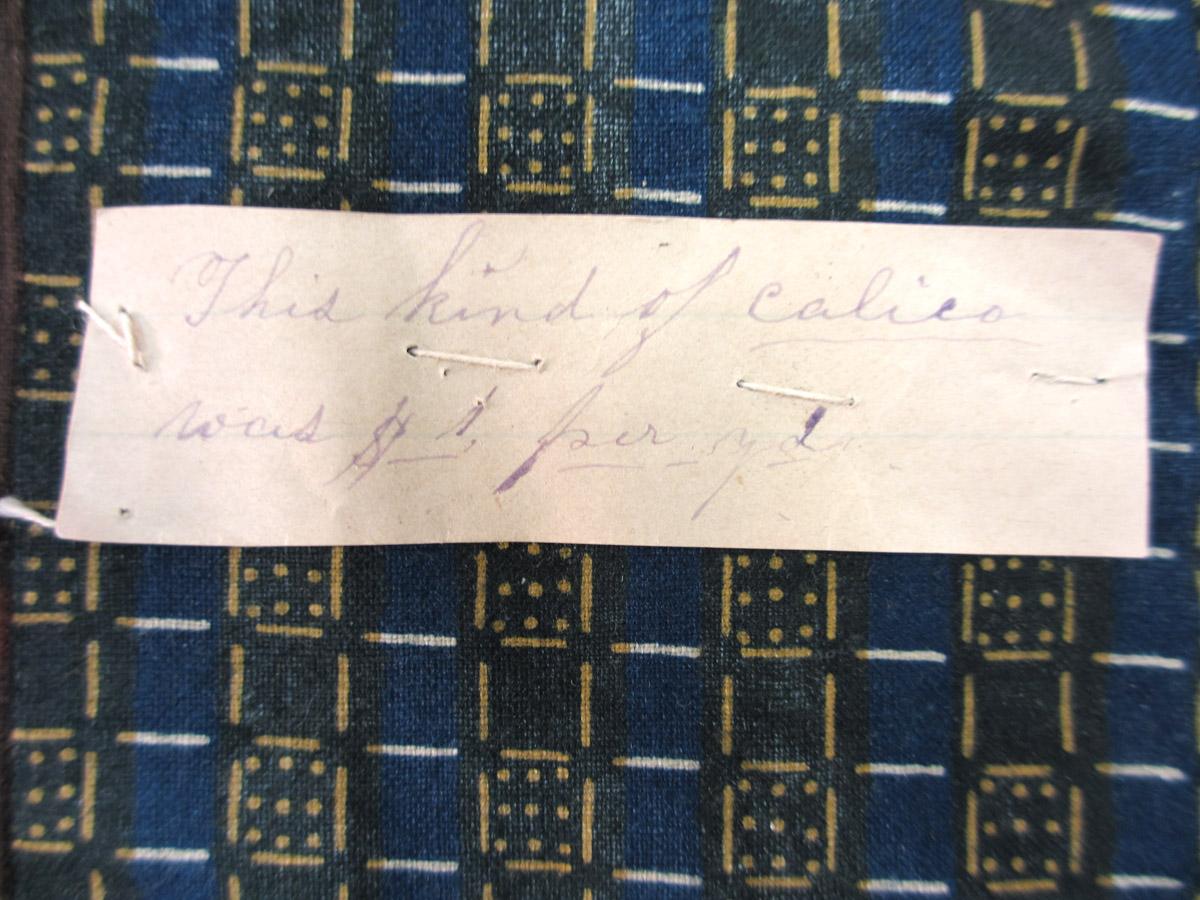 This kind of calico
was $1 per yd.